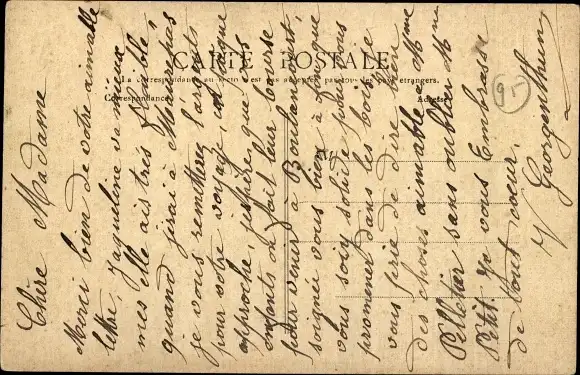 CARTE POSTALE
La correspondance au recto n'est pas acceptée par tous les pays étrangers.
Correspondance
Adresse
95
Chère Madame
Merci bien de votre aimable
lettre, Jaqueline va mieux
mes elle ais très faible,
quand j'irai à
je vous remetterez l'argent
pour votre voyage, cet
approche, j'espère que les
enfants on fait leur bourse
pour venir à Boulancourt,
soignée vous bien à fin que
vous soiy solide pour vous
promener dans les bois. Je
vais faire de dire mon
des choses aimable à Mme
Pelletier sans oublier Mr
Petit. Je vous Embrasse
de tout coeur.
V Georgenthum